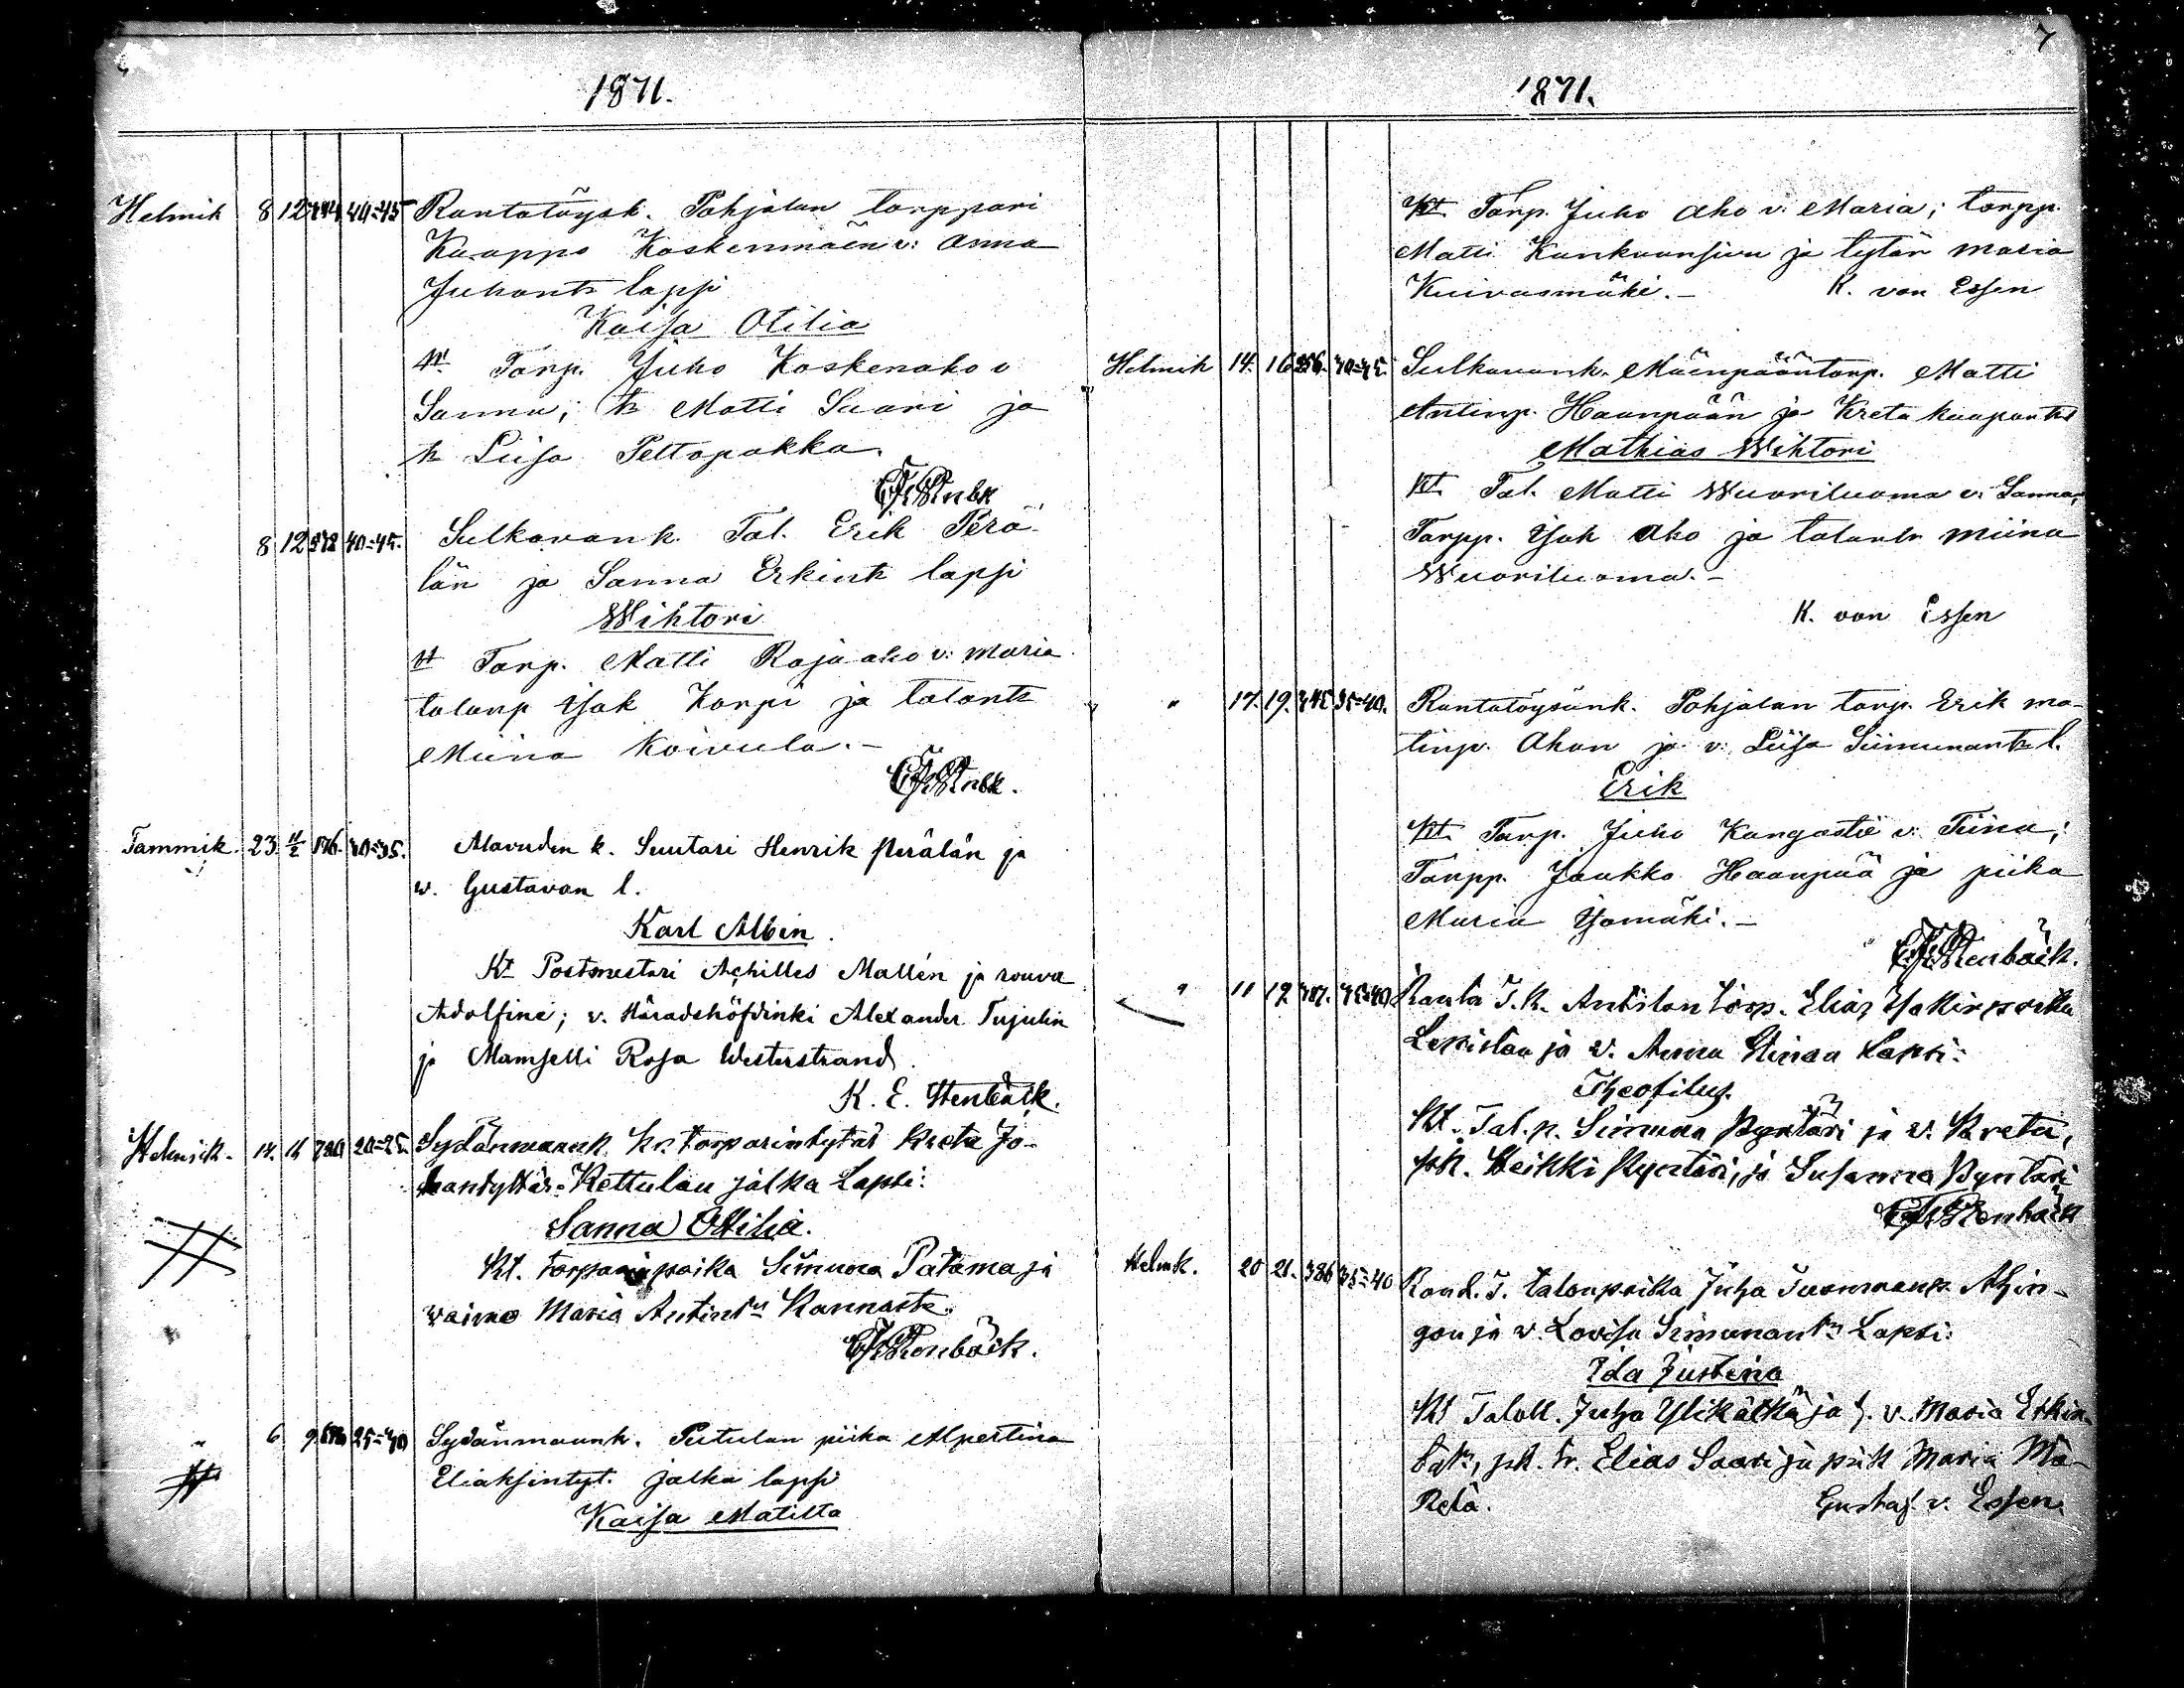 1871.
Helmik 8 12 444 40=45 Rantatöysk. Pohjalan torppari
Kaappo Koskenmäen v: Anna
Juhontr lapsi
Kaisa Otilia
Kt Torp. Juho Koskenaho v
Sanna; tr Matti Saari ja
tr Liisa Peltopakka
8 12 40=45. Sulkavank. Tal. Erik Perä-
län ja Sanna Erkintr lapsi
Wihtori
Kt Torp. Matti Rajaaho v: Maria
talonp Isak Korpi ja talontr
Miina Koivula.-
Tammik. 23 4/2 176. 30=35. Alavuden k. Suutari Henrik Perälän ja
w. Gustavan l.
Karl Albin.
Kt Postmestari Achilles Mallén ja rouva
Adolfine; v. Häradshöfdinki Alexander Tujulin
ja Mamselli Rosa Westerstrand.
K. E. Stenbäck.
Helmik. 14. 16 780 20=25. Sydänmaank. kr. torparintytär Kreta Jo-
hantyttär Kettulan jälkä Lapsi:
Sanna Otilia.
Kt. torparinpoika Simuna Patama ja
vaimo Maria Antintr Kannasto.
Stenbäck.
" 6 9 25=30 Sydänmaank. Putulan piika Alpertina
Eliaksintyt. jalka lapsi
Kaisa Matilta
7
1871.
Kt. Torp. Juho Aho v: Maria; torpp.
Matti Kankaansivu ja tytär Maria
Kuivasmäki.- K. von Essen
Helmik 14. 16 256. 40=45. Sulkavank. Mäenpääntorp. Matti
Antinp. Haanpään ja Kreta kaapontr
Mathias Wihtori
Kt. Tal. Matti Wuoriluoma v: Sanna;
Torpp. Isak Aho ja talontr Miina
Wuoriluoma.-
K. von Essen
" 17. 19. 345 35=40. Rantatöysänk. Pohjalan torp. Erik Ma-
tinp. Ahon ja v: Liisa Siimunantr l.
Erik
Kt. Torp. Juho Kangastie v: Tiina;
Torpp. Jaakko Haanpää ja piika
Maria Isomäki.-
Stenbäck.
" 11 12 35=40 Ranta T.k. Anttilan torp. Elias Isakinpoika
Lepistön ja v. Anna Stinan Lapsi:
Theofilus.
Kt. Tal.p. Simuna Pyntäri ja v. Kreta,
pk. Heikki Pyntäri, ja Susanna Pyntäri
Stenbäck
Helmk. 20 21. 386 35=40 Rand. T. talonpoika Juha Tuomaanp. Ahin-
gon ja v. Lovisa Simunantr Lapsi:
Ida Justina
Kt Taloll. Juha Ylikätkä ja h. v. Maria Erkin
tätr, pk. tr. Elias Saari ja piik Maria Mä-
kelä. Gustaf v. Essen.